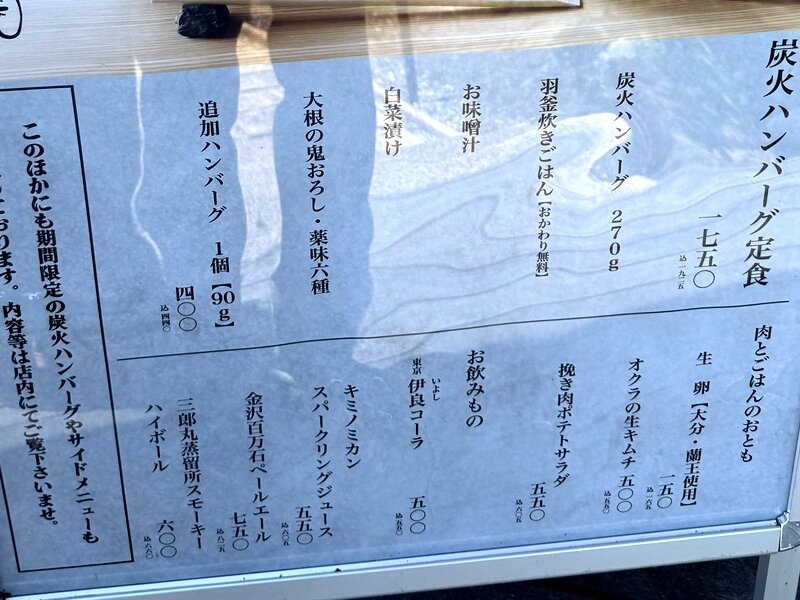 炭火ハンバーグ定食
一七五〇
込 一九二五
炭火ハンバーグ 270g
羽釜炊きごはん【おかわり無料】
お味噌汁
白菜漬け
大根の鬼おろし・薬味六種
追加ハンバーグ 1個【90g】
四〇〇
込 四四〇
肉とごはんのおとも
生 卵【大分・蘭王使用】
一五〇
込 一六五
オクラの生キムチ 五〇〇
込 五五〇
挽き肉ポテトサラダ
五五〇
込 六〇五
お飲みもの
東京 伊良コーラ 五〇〇
いよし
込 五五〇
キミノミカン
スパークリングジュース
五五〇
込 六〇五
金沢百万石ペールエール
七五〇
込 八二五
三郎丸蒸留所スモーキー
ハイボール 六〇〇
込 六六〇
このほかにも期間限定の炭火ハンバーグやサイドメニューも
おります。内容等は店内にてご覧下さいませ。